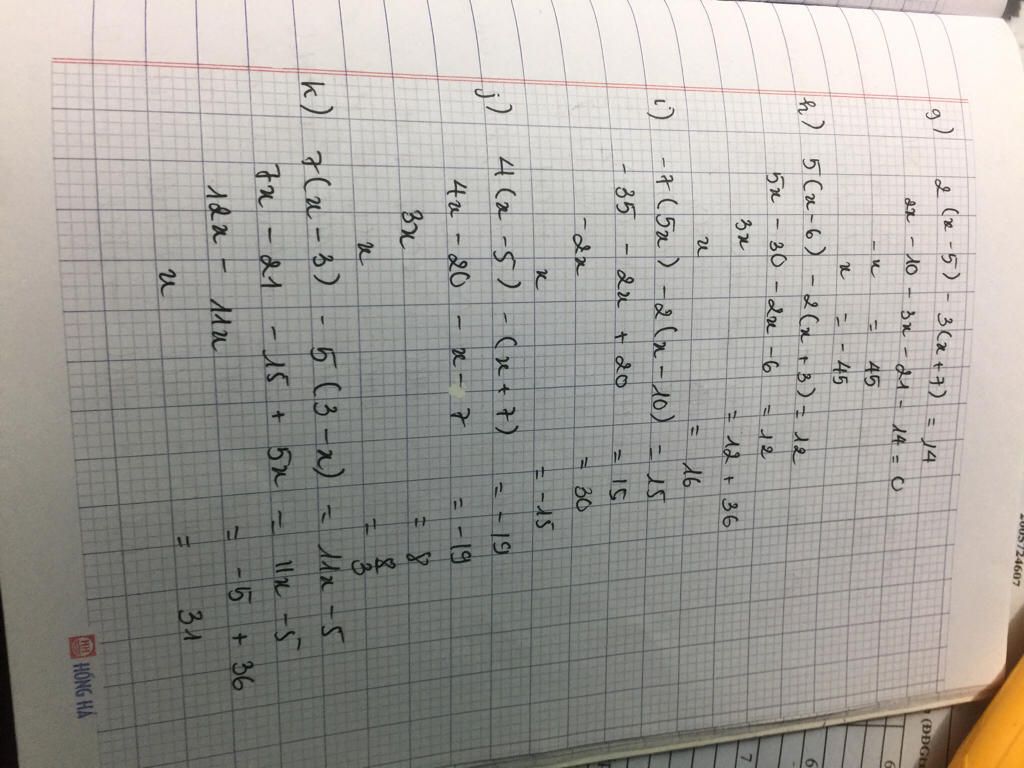 g) 2(x-5) - 3(x+7) = 14
2x - 10 - 3x - 21 - 14 = 0
-x = 45
x = -45
h) 5(x-6) - 2(x+3) = 12
5x - 30 - 2x - 6 = 12
3x = 12 + 36
x = 16
i) -7(5x) - 2(x-10) = 15
-35 - 2x + 20 = 15
-2x = 30
x = -15
j) 4(x-5) - (x+7) = -19
4x - 20 - x - 7 = -19
3x = 8
x = 8/3
k) 7(x-3) - 5(3-x) = 11x - 5
7x - 21 - 15 + 5x = 11x - 5
12x - 11x = -5 + 36
x = 31
HỒNG HÀ